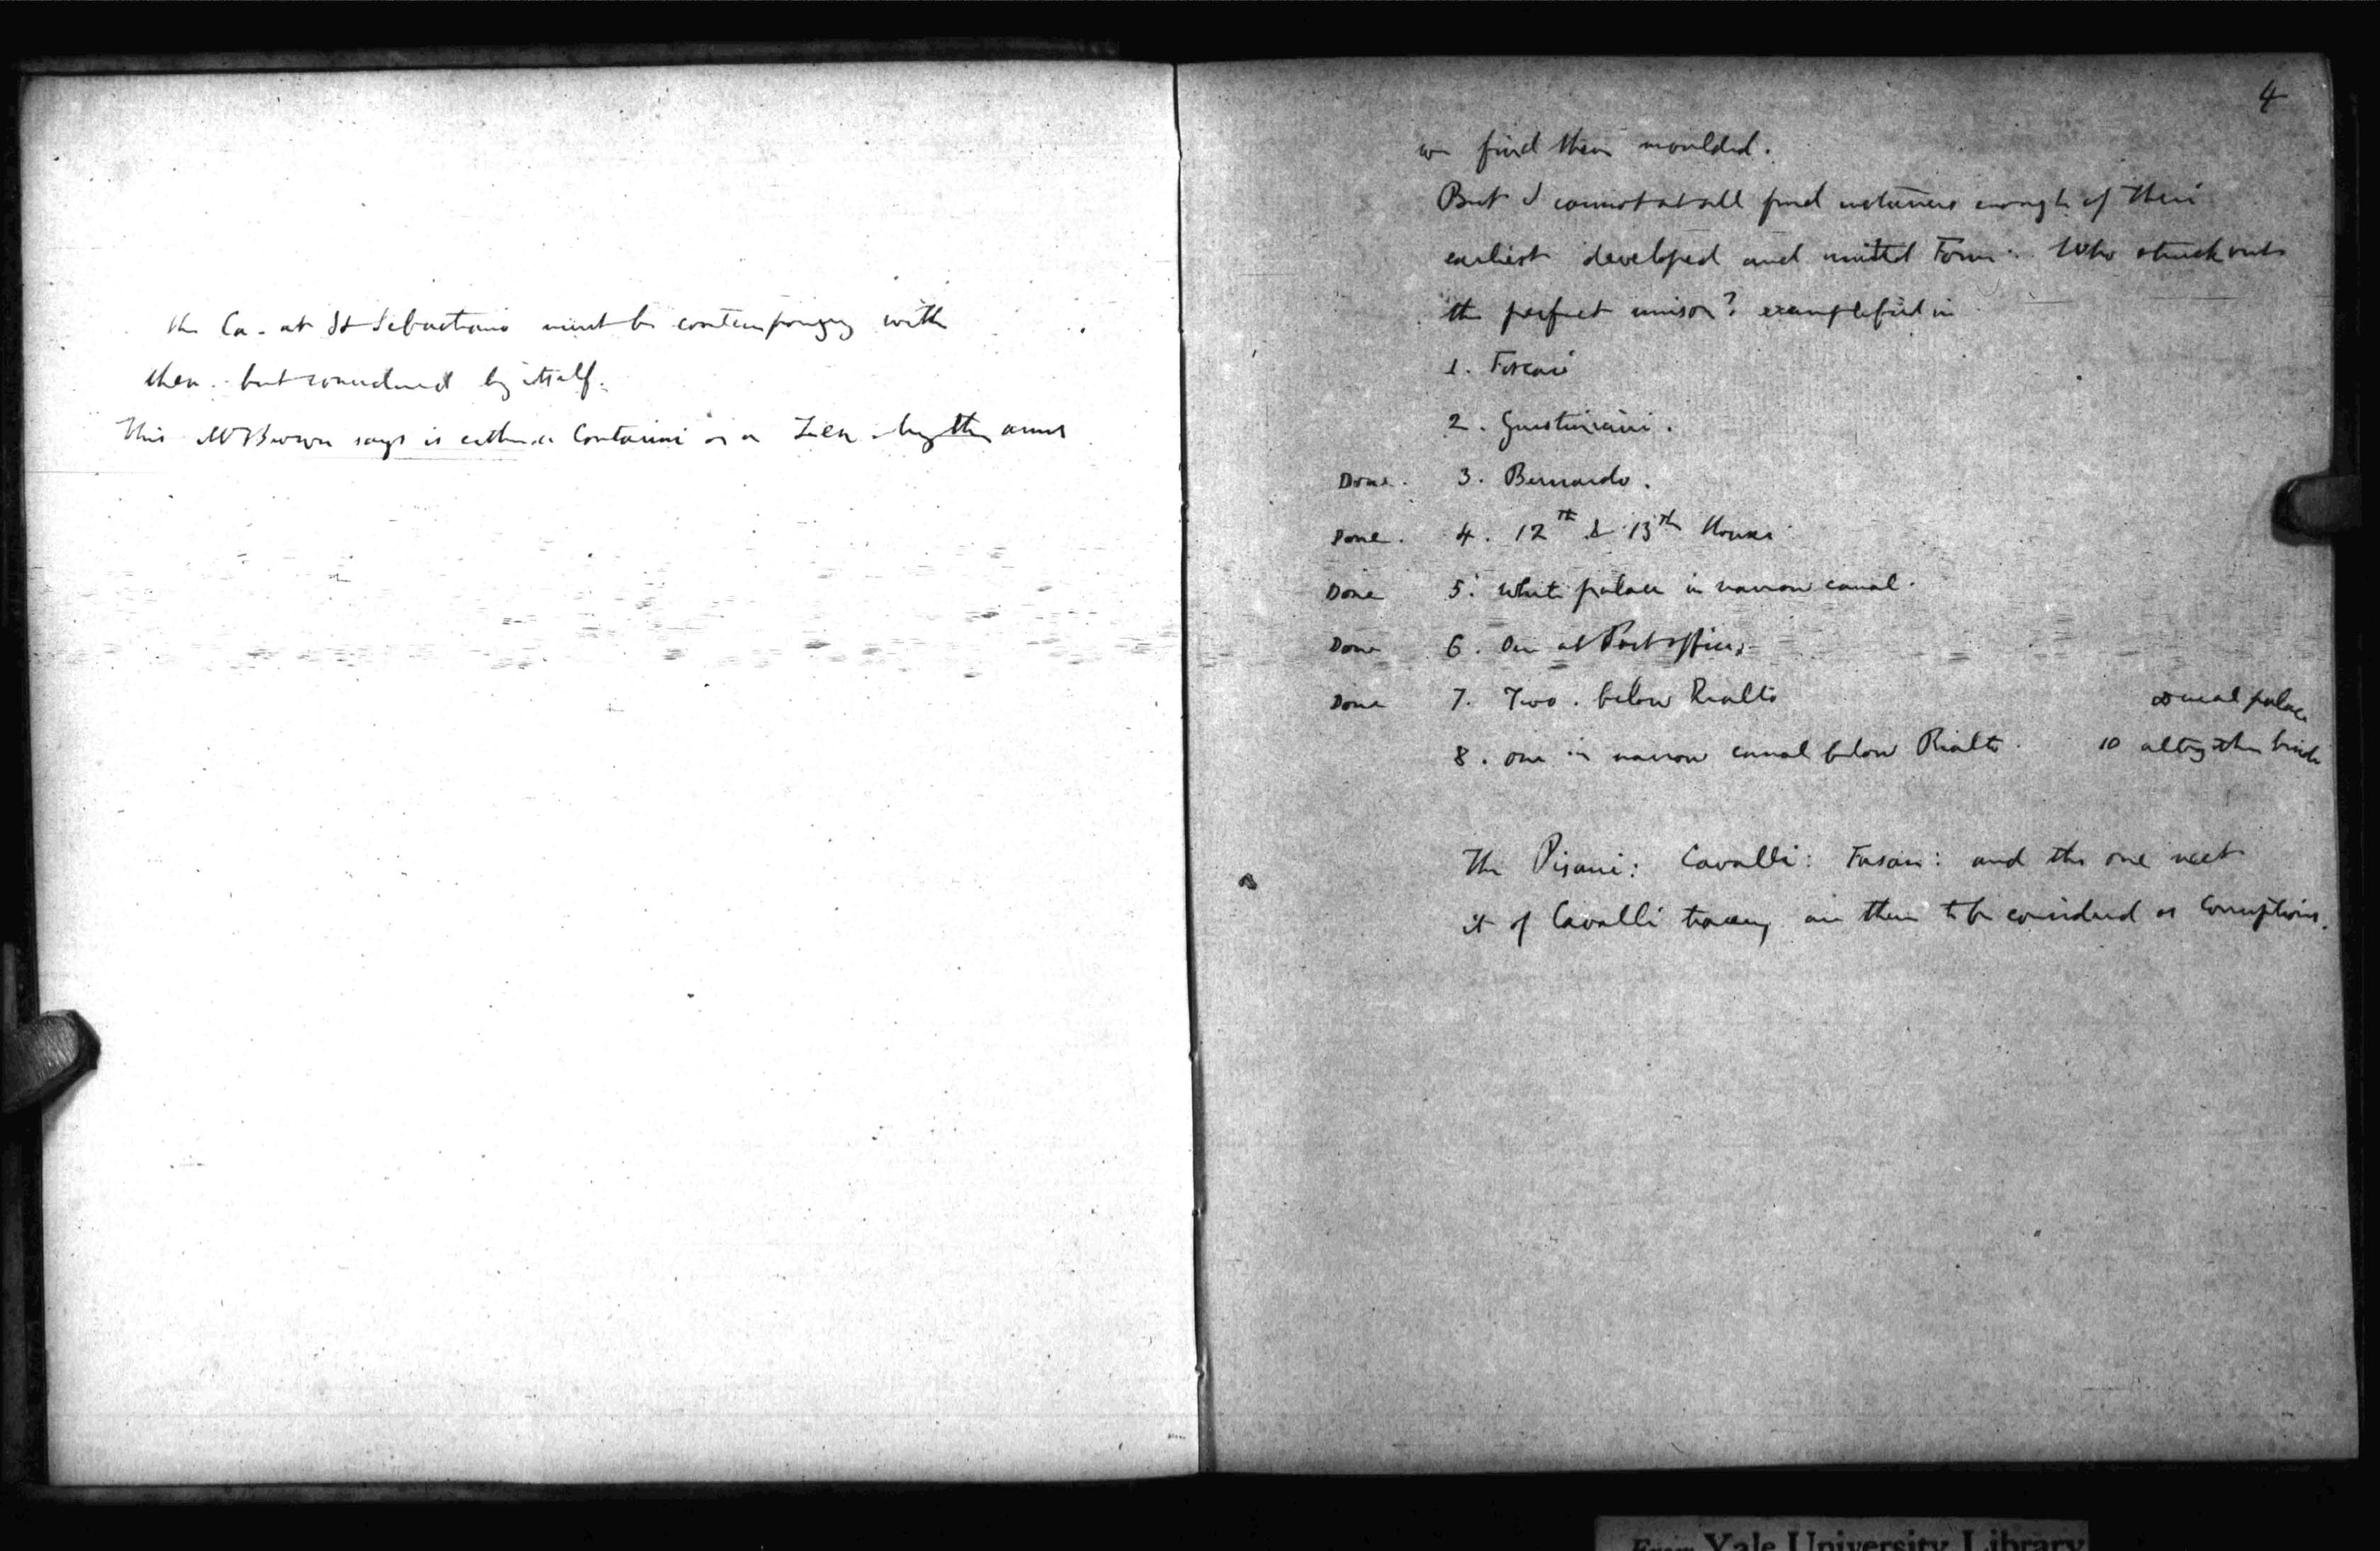 the Ca. at St Sebastiano must be contemporary with
them. but considered by itself.
This Mr Brown says is either a Contarini or a Zen by the arms
4
we find them moulded.
But I cannot at all find instances enough of their
earliest developed and united Form. Who struck out
the perfect unison? exemplified in
1. Foscari
2. Giustiniani.
Done. 3. Bernardo.
Done. 4. 12th & 13th House
Done 5. White palace in narrow canal.
Done 6. One at Post office.
Done 7. Two. below Rialto
palace
8. one in narrow canal below Rialto. 10 altogether
The Pisani: Cavalli: Fasan: and the one next
it of Cavalli tracery are then to be considered as Corruptions.
From Yale University Library